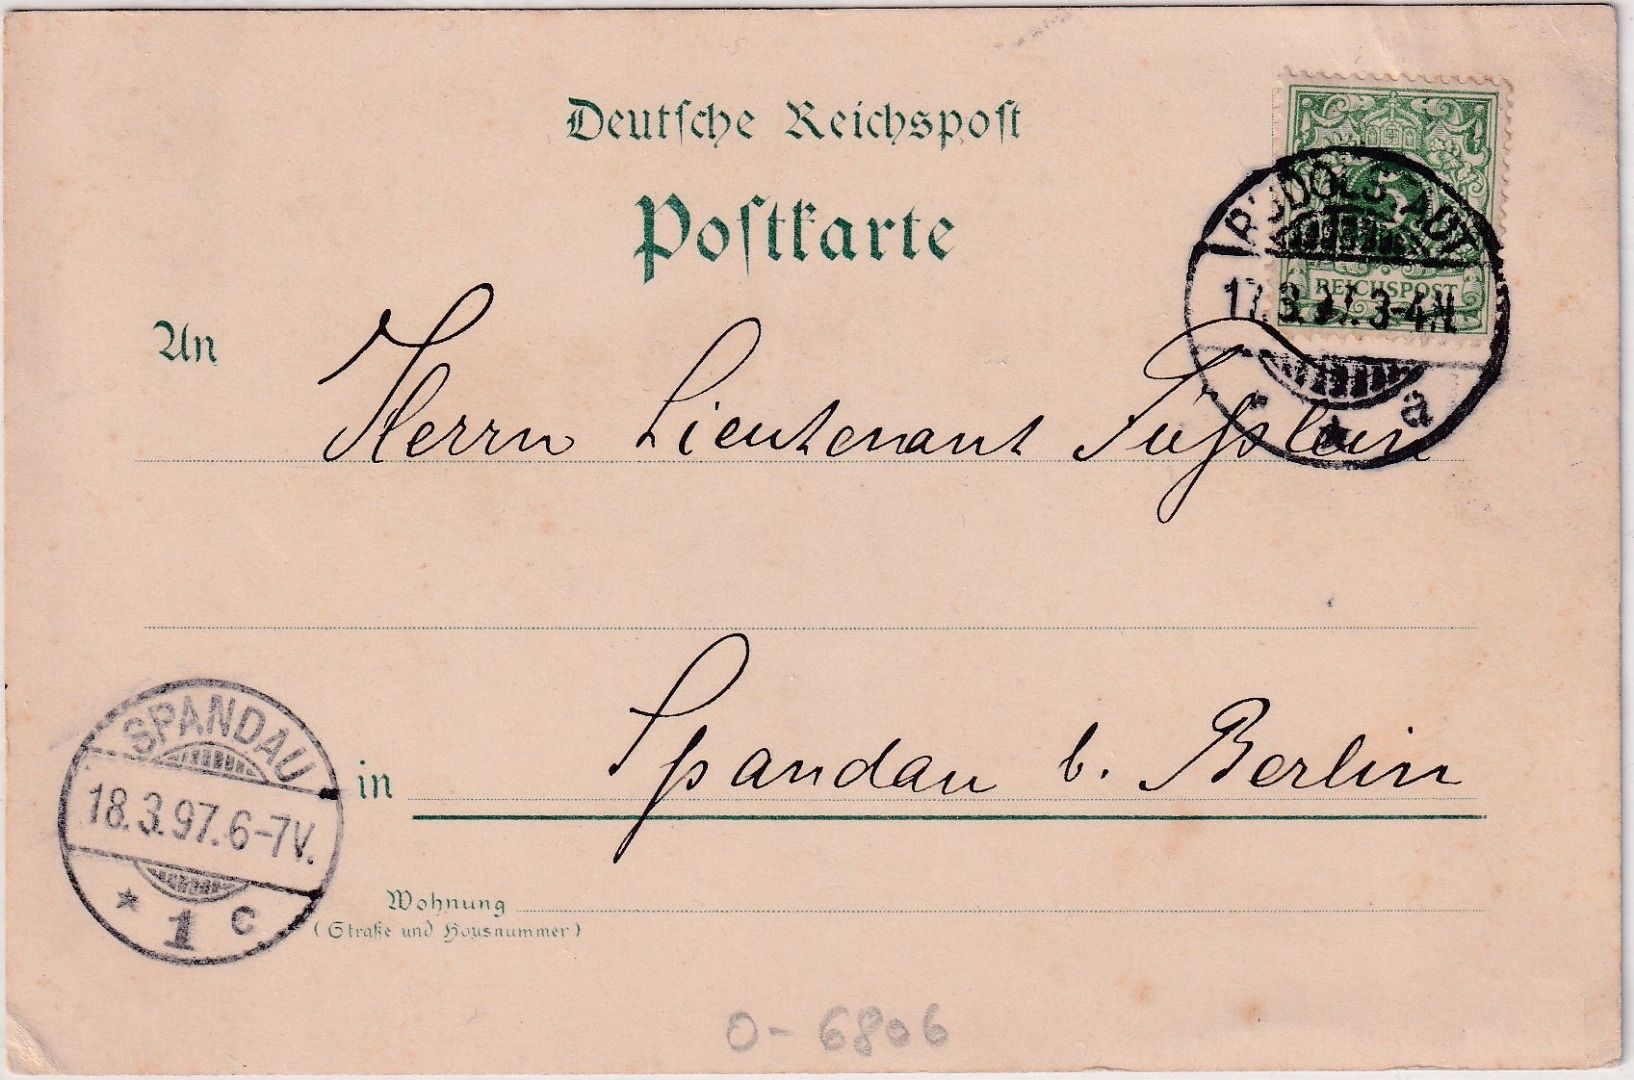 Deutsche Reichspost
Postkarte
RUDOLSTADT
17.3.97.3-4N.
* a
REICHSPOST
An
Herrn Lieutenant
in Spandau b. Berlin
SPANDAU
18.3.97.6-7V.
* 1 c
Wohnung
(Straße und Hausnummer)
0-6806